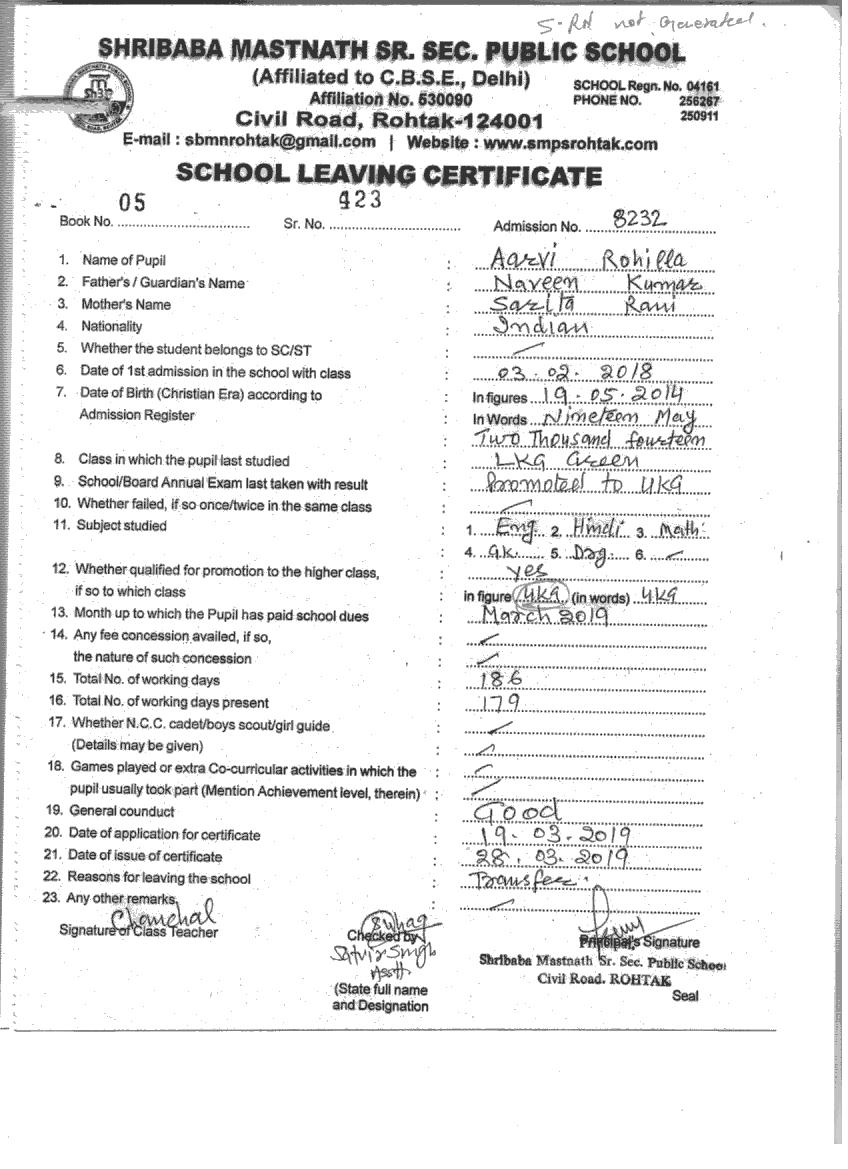 S-RN not Generated.
SHRIBABA MASTNATH SR. SEC. PUBLIC SCHOOL
(Affiliated to C.B.S.E., Delhi)
Affiliation No. 530090
SCHOOL Regn. No. 04161
PHONE NO. 256267
250911
Civil Road, Rohtak-124001
E-mail : sbmnrohtak@gmail.com | Website : www.smpsrohtak.com
SCHOOL LEAVING CERTIFICATE
Book No. 05 Sr. No. 423 Admission No. 8232
1. Name of Pupil : Aarvi Rohilla
2. Father's / Guardian's Name : Naveen Kumar
3. Mother's Name : Sarita Rani
4. Nationality : Indian
5. Whether the student belongs to SC/ST :
6. Date of 1st admission in the school with class : 03.02.2018
7. Date of Birth (Christian Era) according to : In figures 19.05.2014
Admission Register : In Words Nineteen May
: Two Thousand fourteen
8. Class in which the pupil last studied : LKG Green
9. School/Board Annual Exam last taken with result : Promoted to UKG
10. Whether failed, if so once/twice in the same class :
11. Subject studied : 1. Eng 2. Hindi 3. Math
: 4. G.K. 5. Drg. 6.
12. Whether qualified for promotion to the higher class, : yes
if so to which class : in figure UKG (in words) UKG
13. Month up to which the Pupil has paid school dues : March 2019
14. Any fee concession availed, if so, :
the nature of such concession :
15. Total No. of working days : 186
16. Total No. of working days present : 179
17. Whether N.C.C. cadet/boys scout/girl guide :
(Details may be given) :
18. Games played or extra Co-curricular activities in which the :
pupil usually took part (Mention Achievement level, therein) :
19. General counduct : Good
20. Date of application for certificate : 19.03.2019
21. Date of issue of certificate : 28.03.2019
22. Reasons for leaving the school : Transfer
23. Any other remarks :
Chanchal
Signature of Class Teacher
Suhag
Checked by
Satvir Singh
Asstt
(State full name
and Designation
Principal's Signature
Shribaba Mastnath Sr. Sec. Public School
Civil Road, ROHTAK
Seal